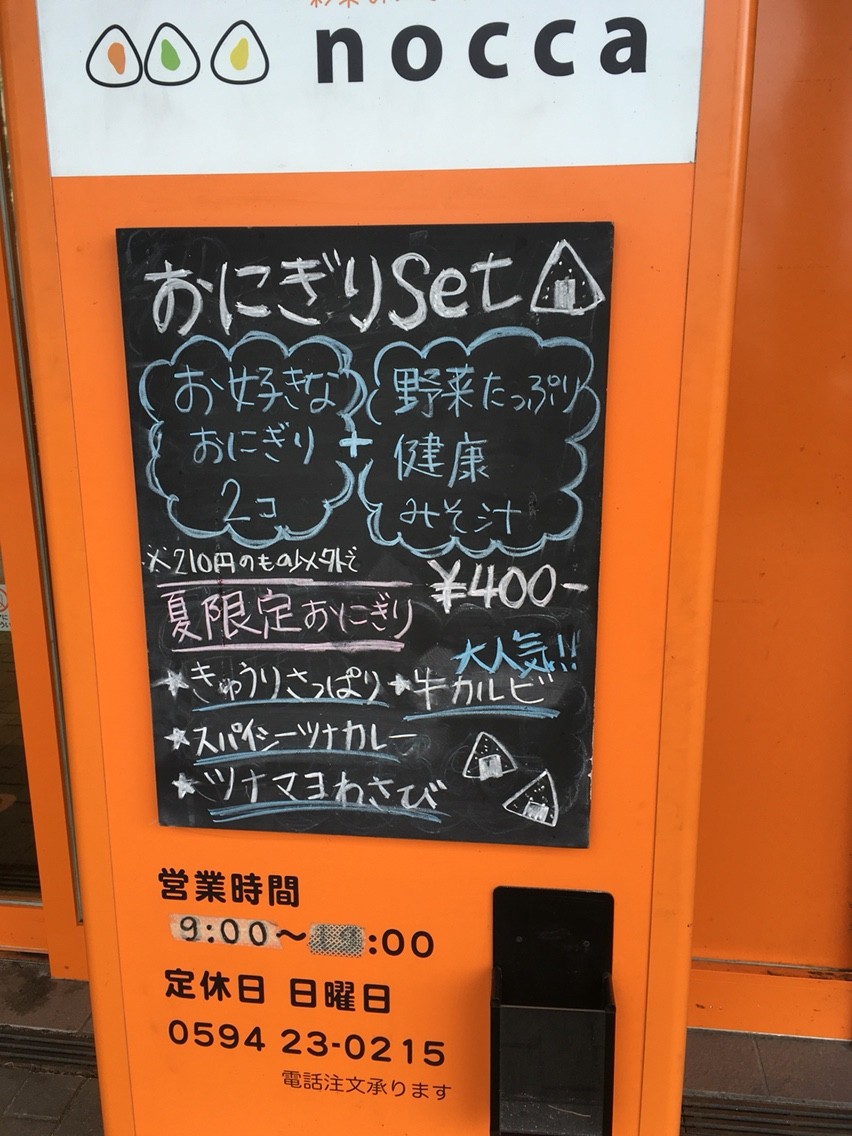 nocca
おにぎりSet
お好きな
おにぎり
2コ
+
野菜たっぷり
健康
みそ汁
※210円のもの以外で
¥400-
夏限定おにぎり
大人気!!
★きゅうりさっぱり
★牛カルビ
★スパイシーツナカレー
★ツナマヨわさび
営業時間
9:00〜:00
定休日 日曜日
0594 23-0215
電話注文承ります